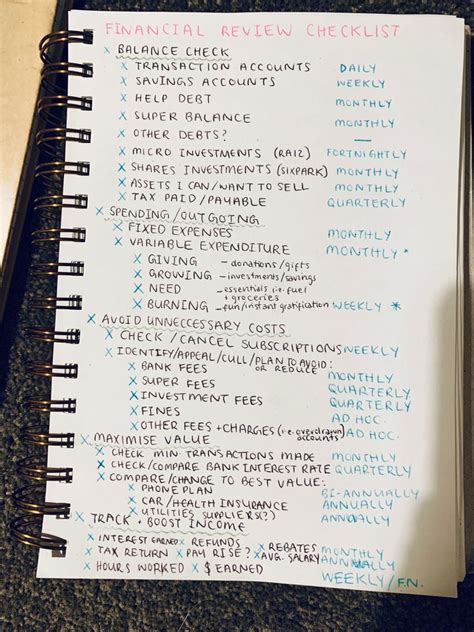 FINANCIAL REVIEW CHECKLIST
X BALANCE CHECK
X TRANSACTION ACCOUNTS DAILY
X SAVINGS ACCOUNTS WEEKLY
X HELP DEBT MONTHLY
X SUPER BALANCE MONTHLY
X OTHER DEBTS? —
X MICRO INVESTMENTS (RAIZ) FORTNIGHTLY
X SHARES INVESTMENTS (SIXPARK) MONTHLY
X ASSETS I CAN/WANT TO SELL MONTHLY
X TAX PAID/PAYABLE QUARTERLY
X SPENDING/OUTGOING
X FIXED EXPENSES MONTHLY
X VARIABLE EXPENDITURE MONTHLY *
X GIVING – donations/gifts
X GROWING – investments/savings
X NEED – essentials i.e. fuel
+ groceries
X BURNING – fun/instant gratification WEEKLY *
X AVOID UNNECCESSARY COSTS
X CHECK / CANCEL SUBSCRIPTIONS WEEKLY
X IDENTIFY/APPEAL/CULL/PLAN TO AVOID:
OR REDUCE
X BANK FEES MONTHLY
X SUPER FEES QUARTERLY
X INVESTMENT FEES QUARTERLY
X FINES AD HOC
X OTHER FEES + CHARGES (i.e. overdrawn AD HOC.
accounts)
X MAXIMISE VALUE
X CHECK MIN TRANSACTIONS MADE MONTHLY
X CHECK/COMPARE BANK INTEREST RATE QUARTERLY
X COMPARE/CHANGE TO BEST VALUE:
X PHONE PLAN BI-ANNUALLY
X CAR/HEALTH INSURANCE ANNUALLY
X UTILITIES SUPPLIERS(?) ANNUALLY
X TRACK + BOOST INCOME
X INTEREST EARNED X REFUNDS X REBATES MONTHLY
X TAX RETURN X PAY RISE? X AVG. SALARY ANNUALLY
X HOURS WORKED X $ EARNED WEEKLY/F.N.